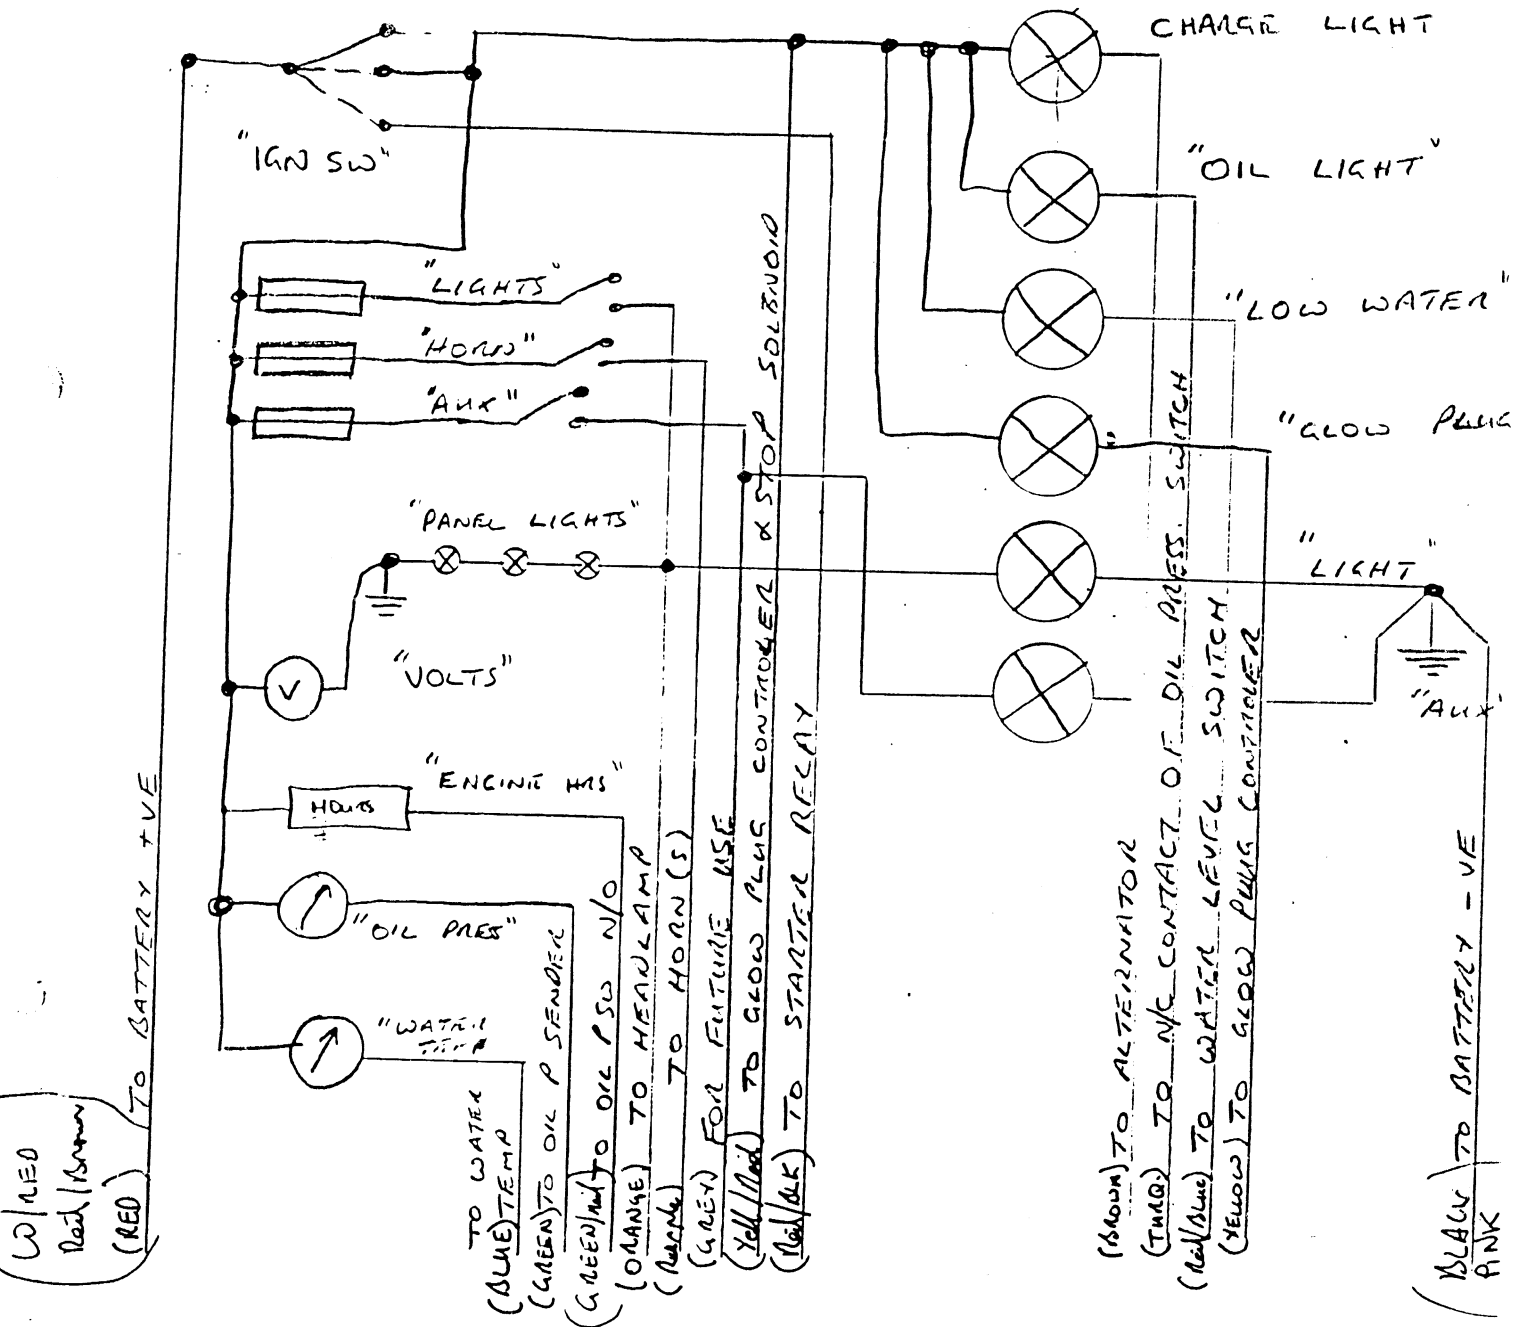 CHARGE LIGHT
"IGN SW"
"OIL LIGHT"
"LIGHTS"
"LOW WATER"
"HORN"
"AUX"
"GLOW PLUG"
"PANEL LIGHTS"
"LIGHT"
"VOLTS"
V
"AUX"
"ENGINE HRS"
HOURS
"OIL PRESS"
"WATER
TEMP
W/RED
Red/Brown
(RED)
TO BATTERY +VE
TO WATER
(BLUE) TEMP
(GREEN) TO OIL P SENDER
(GREEN/Red) TO OIL P SW N/O
(ORANGE) TO HEADLAMP
(Purple) TO HORN(S)
(GREY) FOR FUTURE USE
(Yell/Red) TO GLOW PLUG CONTROLER & STOP SOLENOID
(Red/BLK) TO STARTER RELAY
(BROWN) TO ALTERNATOR
(TURQ.) TO N/C CONTACT OF OIL PRESS. SWITCH
(Red/Blue) TO WATER LEVEL SWITCH
(YELLOW) TO GLOW PLUG CONTROLER
(BLACK) TO BATTERY -VE
PINK